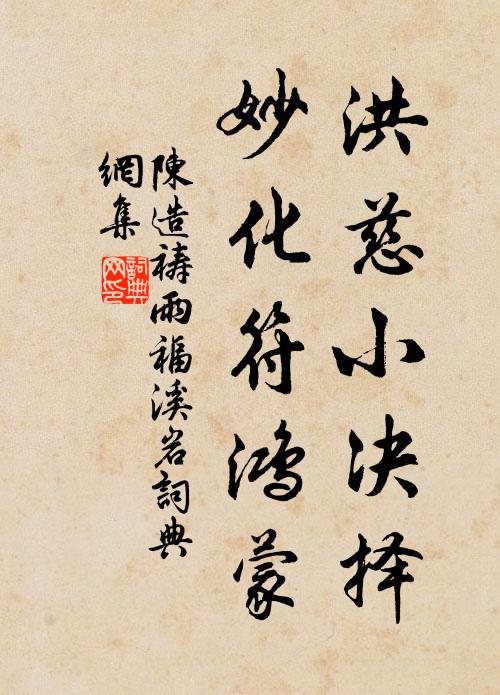 洪慈小决择
妙化符鸿蒙
陳造禱雨福溪岩詞典
網集
詞典网印